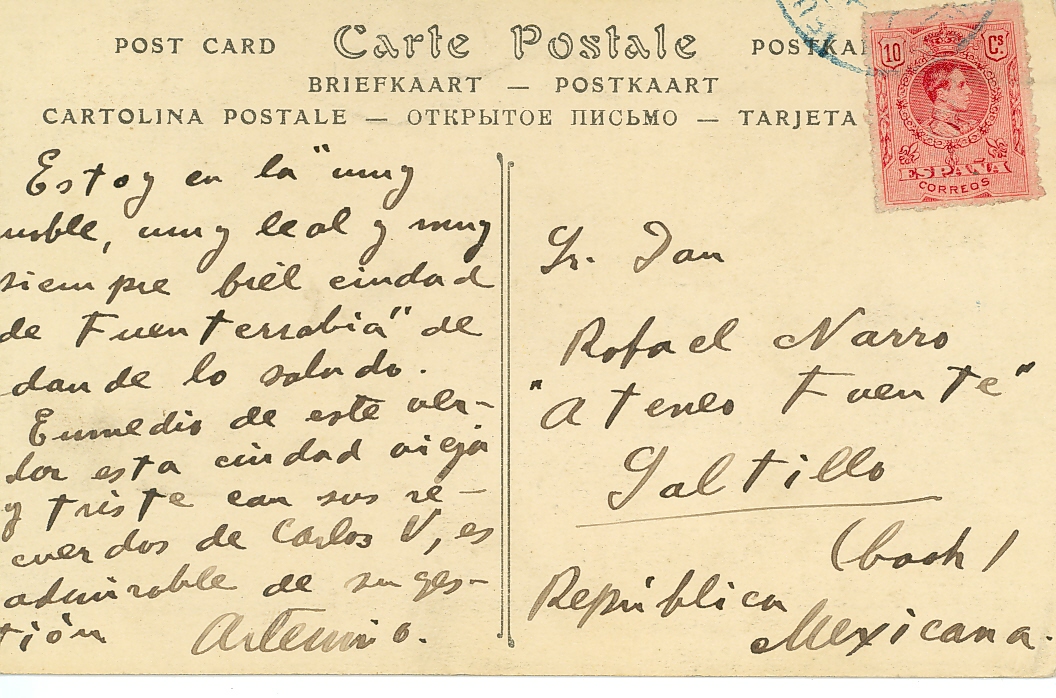 POST CARD Carte Postale POSTKA
BRIEFKAART — POSTKAART
CARTOLINA POSTALE — ОТКРЫТОЕ ПИСЬМО — TARJETA
10 Cs.
ESPAÑA
CORREOS
Estoy en la "muy
noble, muy leal y muy
siempre fiel ciudad
de Fuenterrabia" de
donde lo saludo.
Enmedio de este ver-
dor esta ciudad vieja
y triste con sus re-
cuerdos de Carlos V, es
admirable de suges-
tión Artemio.
Sr. Don
Rafael Narro
"Ateneo Fuente"
Saltillo
(Coah)
República
Mexicana.